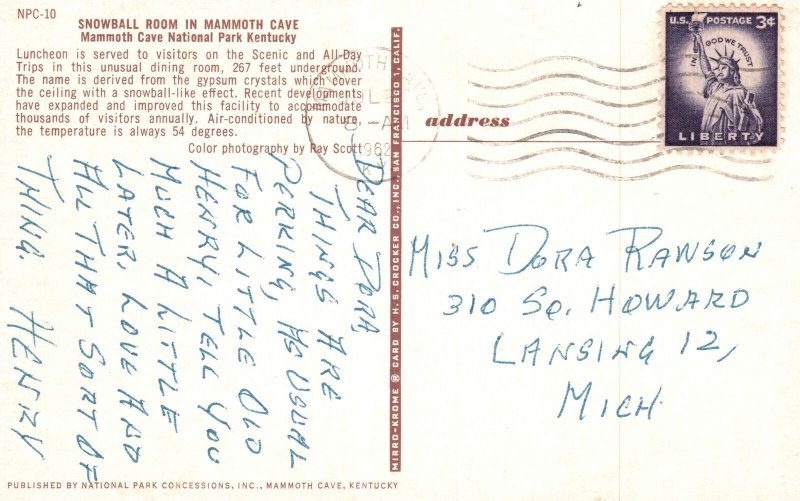 NPC-10
SNOWBALL ROOM IN MAMMOTH CAVE
Mammoth Cave National Park Kentucky
Luncheon is served to visitors on the Scenic and All-Day
Trips in this unusual dining room, 267 feet underground.
The name is derived from the gypsum crystals which cover
the ceiling with a snowball-like effect. Recent developments
have expanded and improved this facility to accommodate
thousands of visitors annually. Air-conditioned by nature,
the temperature is always 54 degrees.
Color photography by Ray Scott
DEAR DORA,
THINGS ARE
PERKING, AS USUAL
FOR LITTLE OLD
HENRY, TELL YOU
MUCH A LITTLE
LATER, LOVE AND
ALL THAT SORT OF
THING.
HENRY
PUBLISHED BY NATIONAL PARK CONCESSIONS, INC., MAMMOTH CAVE, KENTUCKY
MIRRO-KROME ® CARD BY H. S. CROCKER CO., INC., SAN FRANCISCO 1, CALIF.
AM
1962
U.S. POSTAGE 3¢
IN GOD WE TRUST
LIBERTY
address
MISS DORA RAWSON
310 SO. HOWARD
LANSING 12,
MICH.